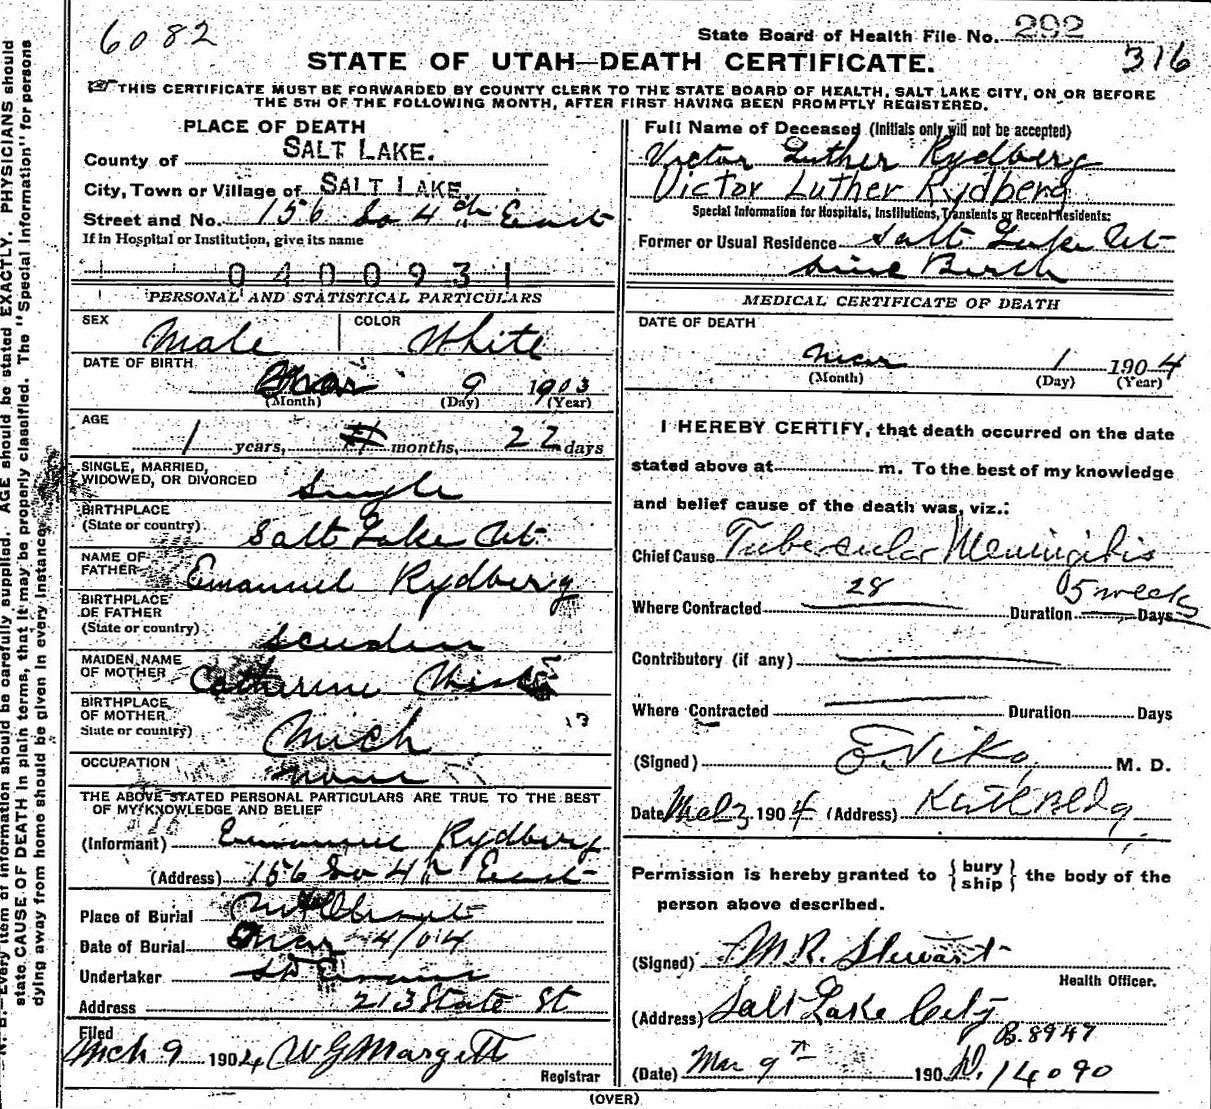 6082
State Board of Health File No. 292
316
STATE OF UTAH—DEATH CERTIFICATE.
THIS CERTIFICATE MUST BE FORWARDED BY COUNTY CLERK TO THE STATE BOARD OF HEALTH, SALT LAKE CITY, ON OR BEFORE
THE 5TH OF THE FOLLOWING MONTH, AFTER FIRST HAVING BEEN PROMPTLY REGISTERED.
N. B.—Every item of information should be carefully supplied. AGE should be stated EXACTLY. PHYSICIANS should
state CAUSE OF DEATH in plain terms, that it may be properly classified. The "Special Information" for persons
dying away from home should be given in every instance.
PLACE OF DEATH
County of SALT LAKE.
City, Town or Village of SALT LAKE
Street and No. 156 So 4th East
If in Hospital or Institution, give its name
0400931
PERSONAL AND STATISTICAL PARTICULARS
SEX Male COLOR White
DATE OF BIRTH
Mar 9 1903
(Month) (Day) (Year)
AGE
1 years, months, 22 days
SINGLE, MARRIED,
WIDOWED, OR DIVORCED Single
BIRTHPLACE
(State or country) Salt Lake Ut
NAME OF
FATHER Emanuel Rydberg
BIRTHPLACE
OF FATHER
(State or country)
MAIDEN NAME
OF MOTHER Catherine
BIRTHPLACE
OF MOTHER
State or country) Mich
13
OCCUPATION none
THE ABOVE STATED PERSONAL PARTICULARS ARE TRUE TO THE BEST
OF MY KNOWLEDGE AND BELIEF
(Informant) Emanuel Rydberg
(Address) 156 So 4th East
Place of Burial Mt Olivet
Date of Burial Mar 4/04
Undertaker
Address 213 State St
Filed
Mch 9 1904 W G Margetts
Registrar
Full Name of Deceased (Initials only will not be accepted)
Victor Luther Rydberg
Victor Luther Rydberg
Special Information for Hospitals, Institutions, Transients or Recent Residents:
Former or Usual Residence Salt Lake Ut
since Birth
MEDICAL CERTIFICATE OF DEATH
DATE OF DEATH
Mar 1 1904
(Month) (Day) (Year)
I HEREBY CERTIFY, that death occurred on the date
stated above at m. To the best of my knowledge
and belief cause of the death was, viz.:
Chief Cause Tubercular Meningitis
28 5 weeks
Where Contracted Duration Days
Contributory (if any)
Where Contracted Duration Days
(Signed) M. D.
Date 1904 (Address) Bldg
Permission is hereby granted to { bury
ship } the body of the
person above described.
(Signed) M R. Stewart
Health Officer.
(Address) Salt Lake City
B. 8947
(Date) Mar 9th 190
D. 14090
(OVER)